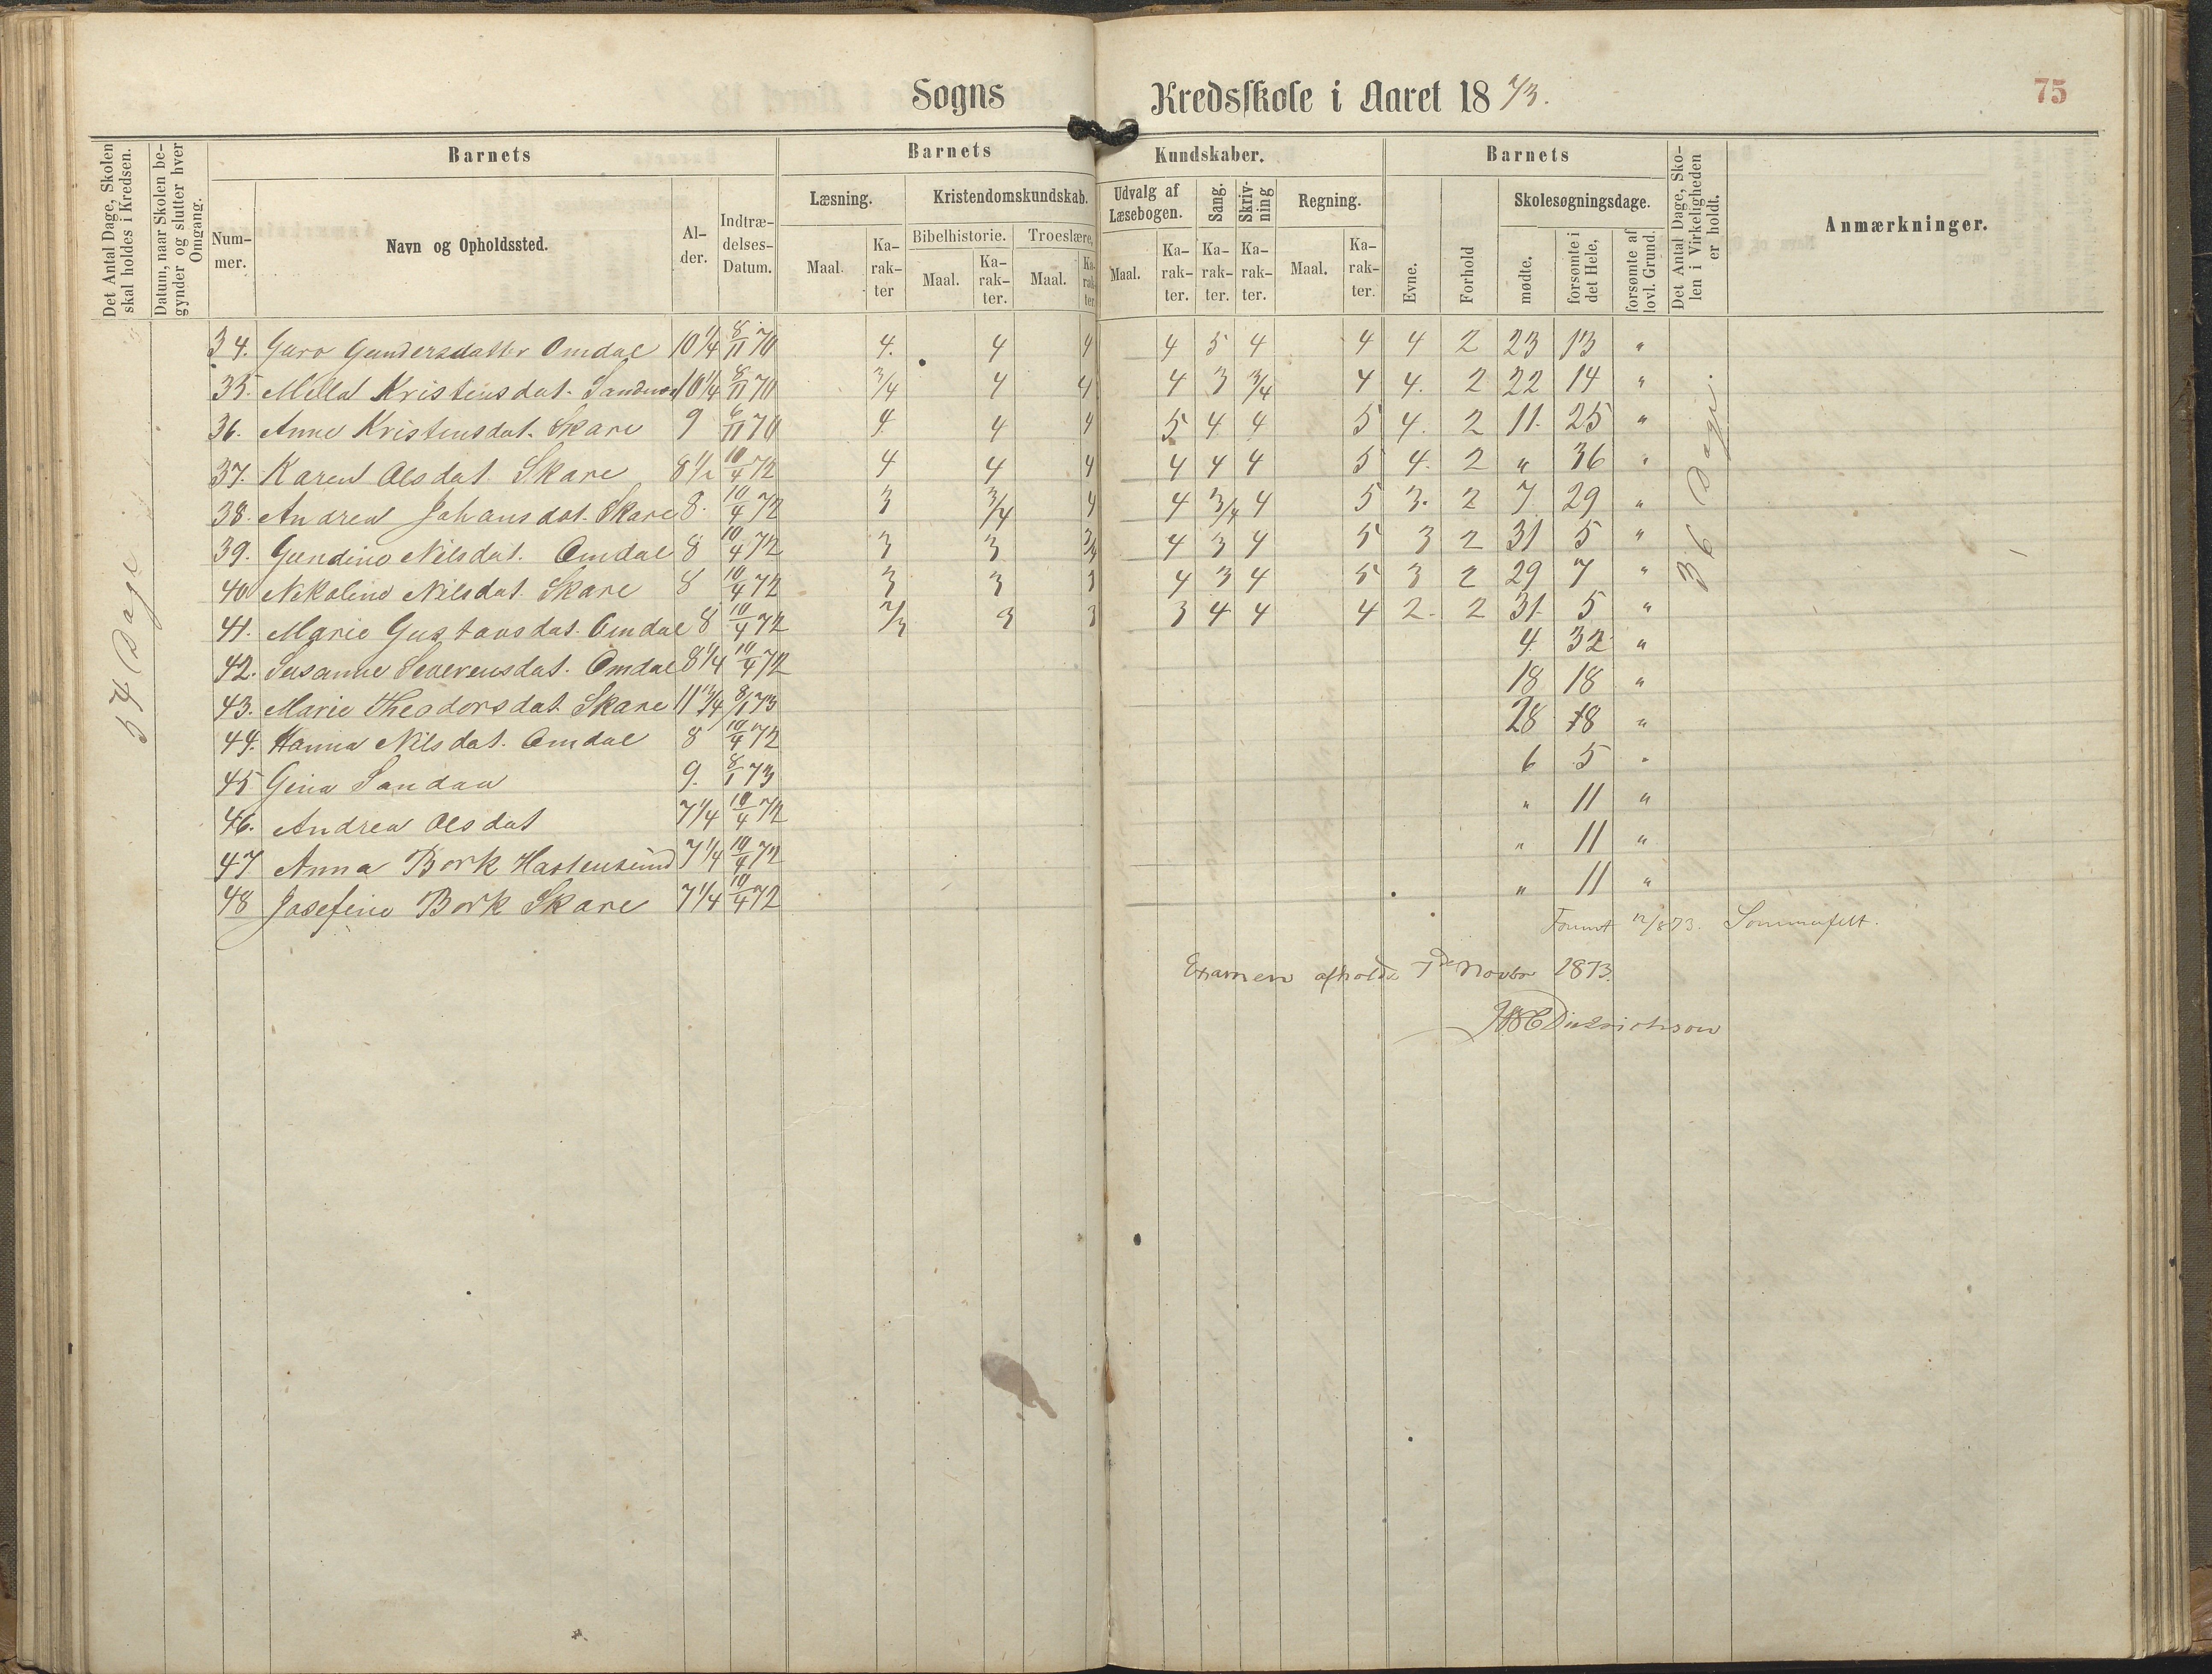 Sogns Kredsskole i Aaret 1873.
75
Det Antal Dage, Skolen skal holdes i Kredsen.
Datum, naar Skolen begynder og slutter hver Omgang.
Barnets
Nummer.
Navn og Opholdssted.
Alder.
Indtrædelses-Datum.
Barnets Kundskaber.
Læsning.
Maal.
Karakter
Kristendomskundskab.
Bibelhistorie.
Maal.
Karakter.
Troeslære,
Maal.
Karakter
Udvalg af Læsebogen.
Maal.
Karakter.
Sang.
Karakter.
Skrivning
Karakter.
Regning.
Maal.
Karakter.
Barnets
Evne.
Forhold
Skolesøgningsdage.
mødte.
forsømte i det Hele,
forsømte af lovl. Grund.
Det Antal Dage, Skolen i Virkeligheden er holdt.
Anmærkninger.
54 Dage
36 Dage.
34. Guro Gundersdatter Omdal 10 1/4 8/11 70 4. 4 4 4 5 4 4 4 2 23 13 "
35. Mella Kristensdat. 10 1/4 8/11 70 3/4 4 4 4 3 3/4 4 4. 2 22 14 "
36. Anne Kristensdat. Skare 9 6/11 70 4 4 4 5 4 4 5 4. 2 11. 25 "
37. Karen Olsdat. Skare 8 1/2 10/4 72 4 4 4 4 4 4 5 4. 2 " 36 "
38. Andrea Johansdat. Skare 8. 10/4 72 3 3/4 4 4 3/4 4 5 3. 2 7 29 "
39. Gundine Nilsdat. Omdal 8 10/4 72 3 3 3/4 4 3 4 5 3 2 31 5 "
40 Nikoline Nilsdat. Skare 8 10/4 72 3 3 3 4 3 4 5 3 2 29 7 "
41. Marie Gustavsdat. Omdal 8 10/4 72 2/3 3 3 3 4 4 4 2. 2 31 5 "
42. Susanne Severensdat. Omdal 8 1/4 10/4 72 4. 32 "
43. Marie Theodorsdat. Skare 11 3/4 8/1 73 18 18 "
44. Hanna Nilsdat. Omdal 8 10/4 72 28 8 "
45 Gina Sandaa 9. 8/1 73 6 5 "
46. Andrea Olsdat 7 1/4 10/4 72 " 11 "
47 Anna Bork 7 1/4 10/4 72 " 11 "
48 Josefine Bork Skare 7 1/4 10/4 72 " 11 "
12/8 73. Sommerfelt.
Examen afholdt 7de Novbr 1873.
Diedrichson